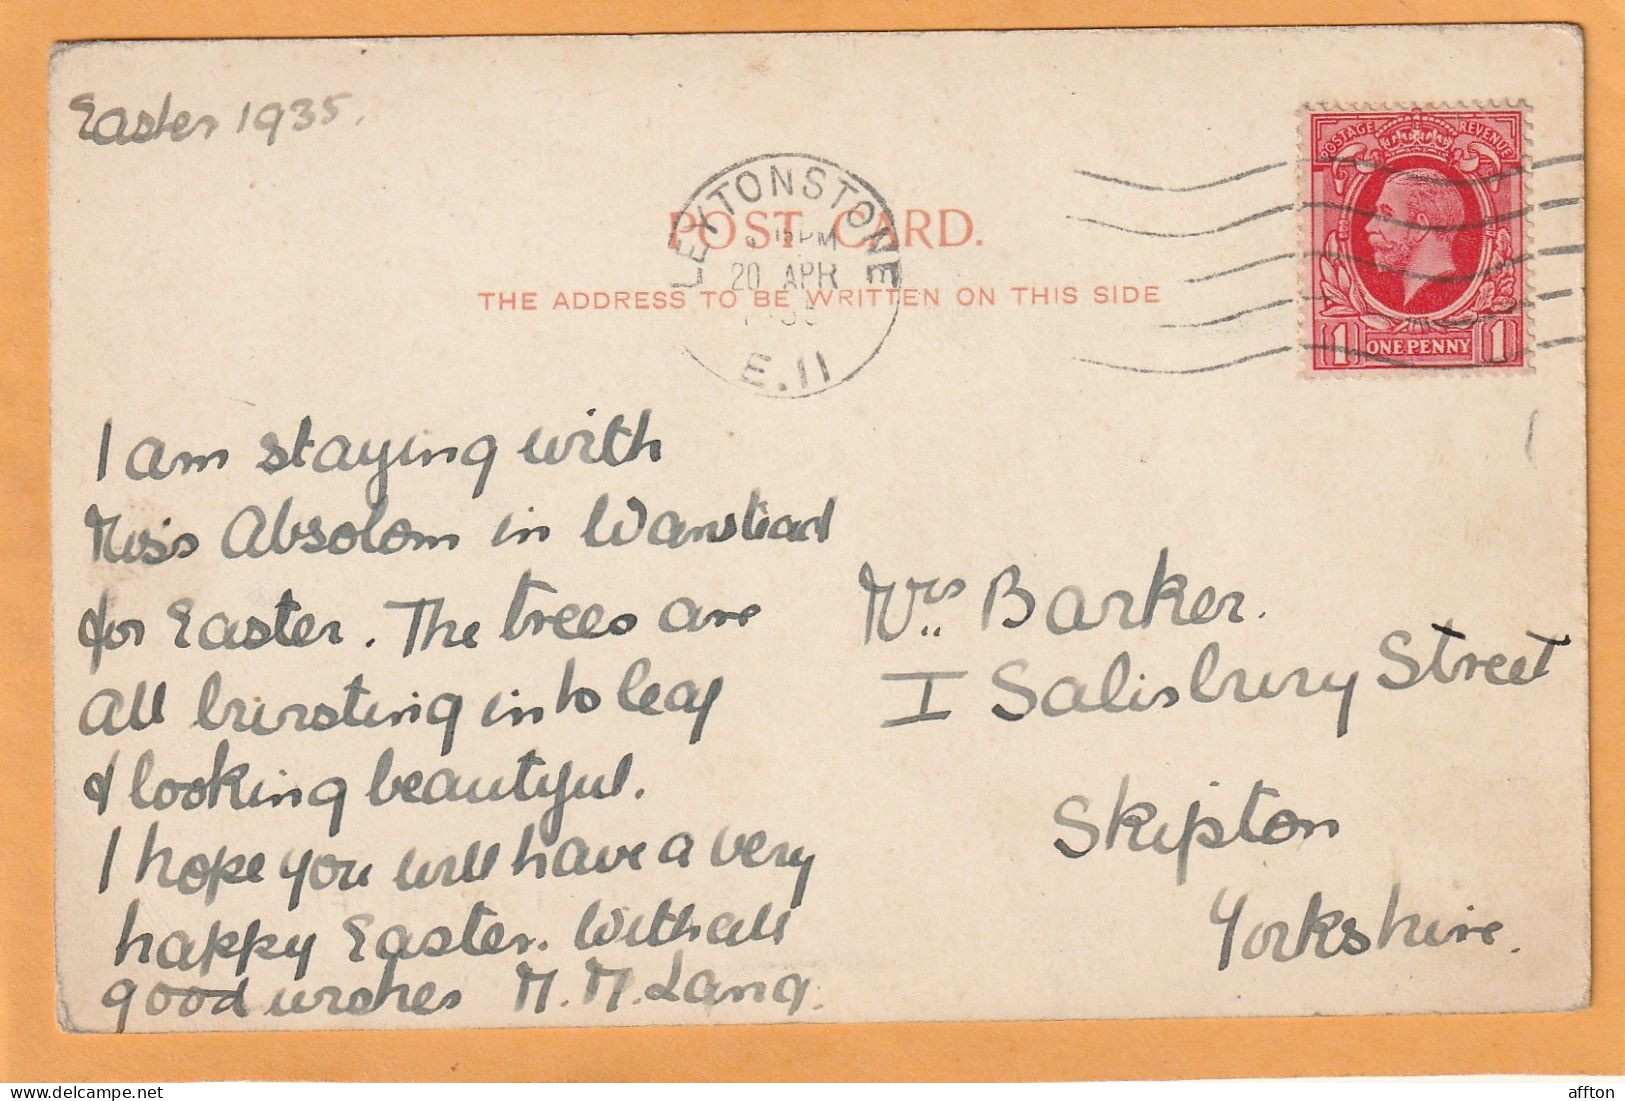 Easter 1935.
LEYTONSTONE
15 PM
20 APR
E.11
POST CARD.
THE ADDRESS TO BE WRITTEN ON THIS SIDE
POSTAGE REVENUE
1 ONE·PENNY 1
I am staying with
Miss Absolom in Wanstead
for Easter. The trees are
all bursting into leaf
& looking beautiful.
I hope you will have a very
happy Easter. With all
good wishes M. M. Lang.
Mrs. Barker.
I Salisbury Street
Skipton
Yorkshire.
affton